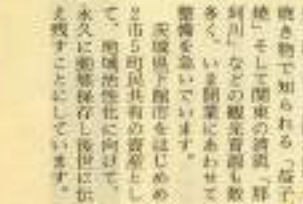 焼き物で知られる「益子
焼」そして関東の清流「那
珂川」などの観光資源も数
多く、いま開業にあわせて
整備を急いでいます。
茨城県下館市をはじめめ
2市5町民共有の資産とし
て、地域活性化に向けて、
永久に動態保存し後世に伝
え残すことにしています。